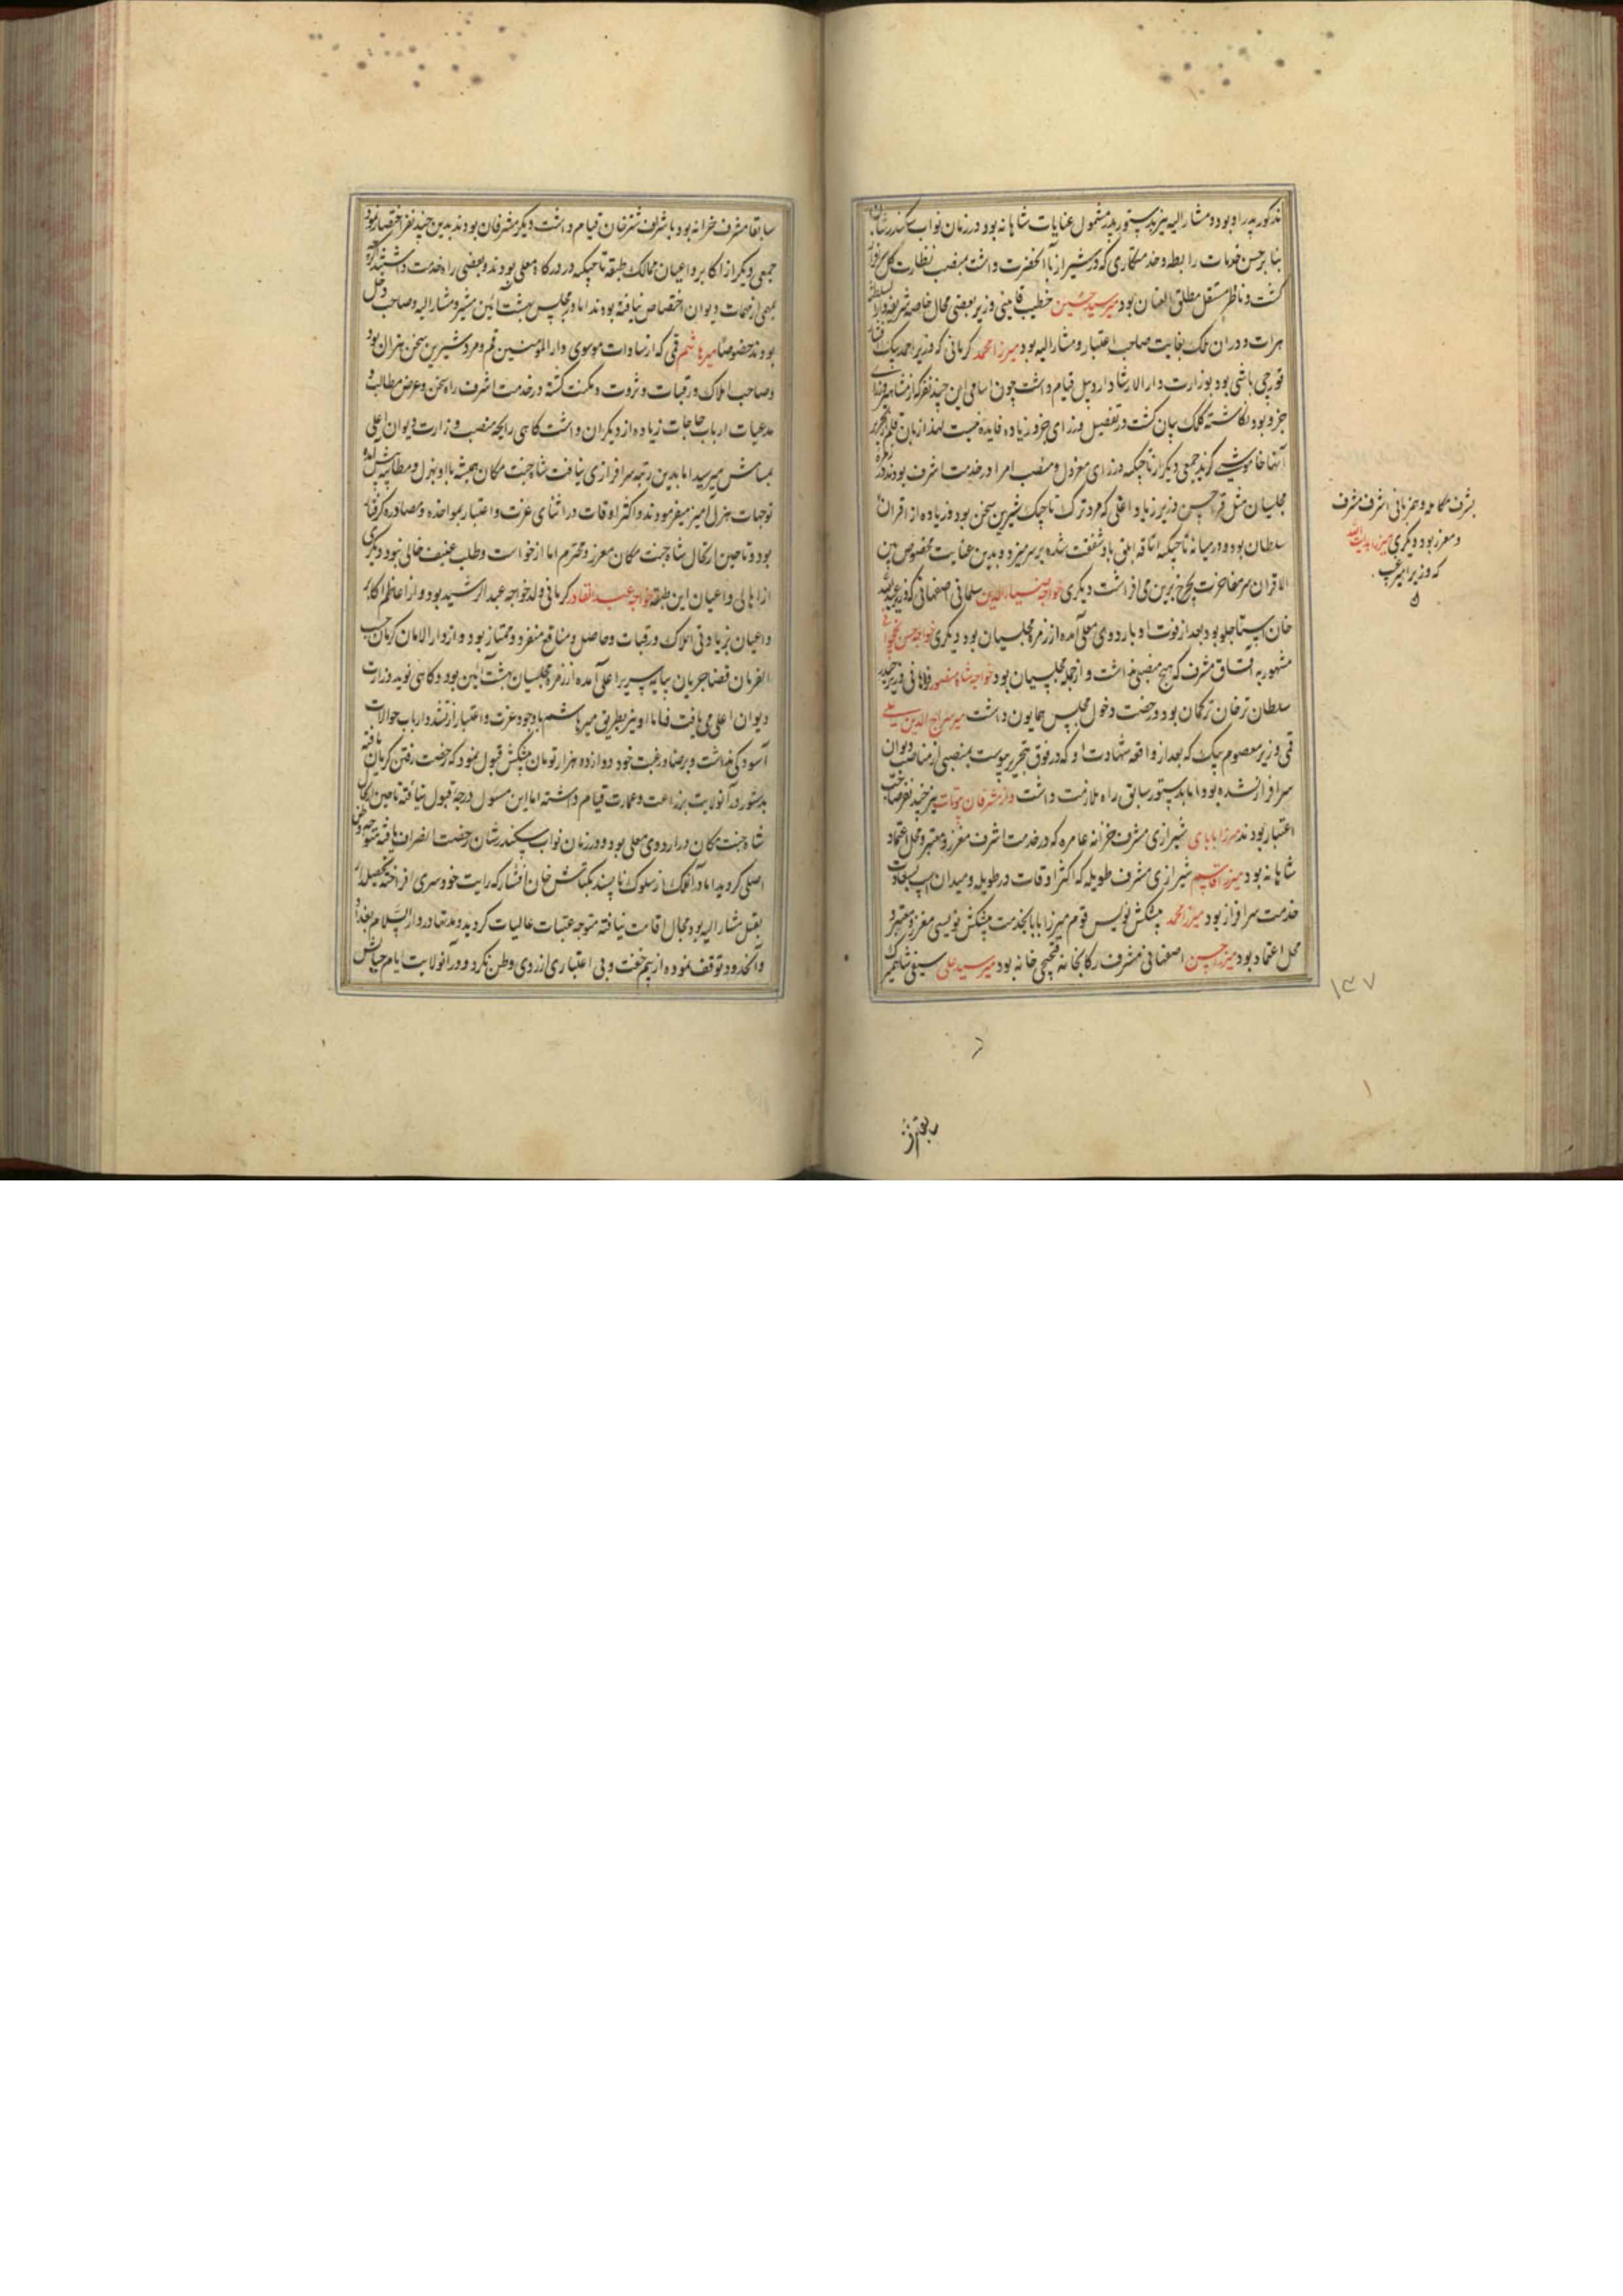 مذکور پدر او بود و مشار الیه نیز بدستور پدر مشمول عنایات شاهانه بود و در زمان نواب سکندر شان
بنا بر حسن خدمات را بطه و خدمتکاری که در شیراز با آنحضرت داشت بمنصب نظارت کل سرافراز
گشت و ناظر مستقل مطلق العنان بود میر سید حسین خطیب قاینی وزیر بعضی محال خاصه شریفه دار السلطنه
هرات و در ان ملک بغایت صاحب اعتبار و مشار الیه بود میرزا محمد کرمانی که وزیر احمد بیک افشار
قورچی باشی بود بوزارت دار الارشاد اردبیل قیام داشت چون اسامی این چند نفر که از مشاهیر وزرای
جزو بود نگاشته کلک بیان گشت در تفصیل وزرای جزو زیاده فایده نیست لهذا زبان قلم از تحریر
آنها خاموشی گزید جمعی دیگر از تاجیکه وزرای معزول و منصب امرا در خدمت اشرف بودند و در زمره
مجلسیان مثل قرا حسن وزیر زیاد اغلی که مرد ترک تاجیک شیرین سخن بود و زیاده از اقران
سلطان بود و در میانه تاجیکه اتاقه ابلق باو شفقت شده بر سر میزد و بدین عنایت مخصوص بین
الاقران سر مفاخرت بچرخ برین می افراشت دیگری خواجه ضیاء الدین سلمانی اصفهانی که وزیر عبد الله
خان استاجلو بود بعد از فوت او باردوی معلی آمده از زمره مجلسیان بود دیگری خواجه حسن نخجوانی
مشهور به قساق مشرف که هیچ منصبی نداشت و از جمله مجلسیان بود خواجه شاه منصور فراهانی وزیر حیدر
سلطان ترخان ترکمان بود و رخصت دخول مجلس همایون داشت میر سراج الدین علی
قمی وزیر معصوم بیک که بعد از واقعه شهادت او که در فوق بتحریر پیوست بمنصبی از مناصب دیوان
سرافراز نشده بود اما بدستور سابق راه ملازمت داشت و از مشرفان بیوتات نیز چند نفر صاحب
اعتبار بودند میرزا بابای شیرازی مشرف خزانه عامره که در خدمت اشرف معزز و معتبر و محل اعتماد
شاهانه بود میرزا قاسم شیرازی مشرف طویله که اکثر اوقات در طویله و میدان اسب بسعادت
خدمت سرافراز بود میرزا محمد پیشکش نویس قوم میرزا بابا بخدمت پیشکش نویسی معزز و معتبر و
محل اعتماد بود میرزا حسن اصفهانی مشرف رکابخانه و قیچیچی خانه بود میر سید علی سیفی شاهمیر که
بشرف مکالمه و همزبانی اشرف مشرف
و معزز بود و دیگری میرزا هدایت الله
که وزیر امیر غیب
۱۴۷
سابقا مشرف
سابقا مشرف خزانه بود با شراف شترخان قیام داشت دیگر مشرفان بودند بدین چند نفر اختصار نمود
جمعی دیگر از اکابر و اعیان ممالک طبقه تاجیکه در درگاه معلی بودند و بعضی راه خدمت داشتند اگرچه
بمهمی از مهمات دیوان اختصاص نیافته بودند اما در مجلس بهشت آئین مشیر و مشار الیه و صاحب دخل
بودند خصوصا میر هاشم قمی که از سادات موسوی دار المؤمنین قم و مرد شیرین سخن هنران بود
و صاحب املاک و رقبات و ثروت و مکنت گشته در خدمت اشرف راه سخن و عرض مطالب و
مدعیات ارباب حاجات زیاده از دیگران داشت گاهی رایحه منصب وزارت دیوان اعلی
بمشامش میرسید اما بدین رتبه سرافرازی نیافت شاه جنت مکان همیشه با او بهزل و مطایبه پیش آمده
توجهات هزل آمیز میفرمودند و اکثر اوقات در اثنای عزت و اعتبار بمواخذه و مصادره گرفتار
بود و تا حین ارتحال شاه جنت مکان معزز و محترم اما از خواست و طلب عنیف خالی نبود دیگری
از اهالی و اعیان این طبقه خواجه عبد القادر کرمانی ولد خواجه عبد الرشید بود و از اعاظم اکابر
و اعیان بزیادتی املاک و رقبات و حاصل و منافع منفرد و ممتاز بود و از دار الامان کرمان حسب
الفرمان قضا جریان بپایه سریر اعلی آمده از زمره مجلسیان بهشت آئین بود و گاهی نوید وزارت
دیوان اعلی می یافت فاما او نیز بطریق میر هاشم با وجود عزت و اعتبار از تشدد ارباب حوالات
آسودگی نداشت و برضا و رغبت خود دوازده هزار تومان پیشکش قبول نمود که رخصت رفتن کرمان یافته
بدستور در آنولایت بزراعت و عمارت قیام داشته اما این مسئول درجه قبول نیافته تا حین ارتحال
شاه جنت مکان در اردوی معلی بود و در زمان نواب سکندر شان رخصت انصراف یافته متوجه وطن
اصلی گردید اما در آنملک از سلوک ناپسند بکتاش خان افشار که رایت خود سری افراخته بتحصیلدار
بقتل مشار الیه بود مجال اقامت نیافته متوجه عتبات عالیات گردید و مدتها در دار السلام بغداد
و آنحدود توقف نموده از بیم خفت و بی اعتباری آرزوی وطن نکرد و در آنولایت ایام حیاتش